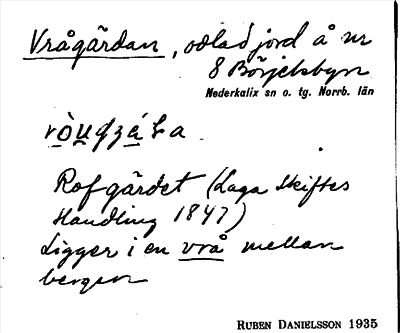 Vrågärdan, odlad jord å nr
8 Börjelsbyn
Nederkalix sn o. tg. Norrb. län
Rofgärdet (Laga Skiftes
Handling 1847)
Ligger i en vrå mellan
bergen
RUBEN DANIELSSON 1935